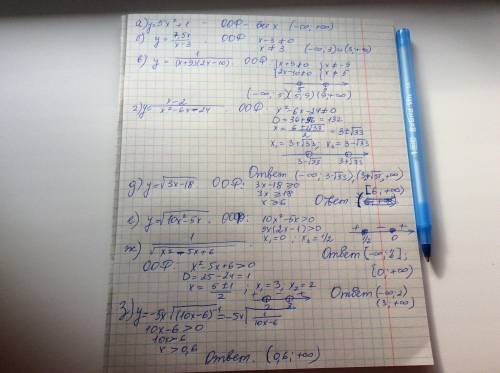 а) y=5x²+1 - ООФ - все x (-∞; +∞)
б) y = 7,5x/(x-3) ООФ x-3≠0
x ≠ 3 (-∞; 3)∪(3; +∞)
в) y = 1/((x+9)(2x-10)) ООФ { x+9≠0 { x≠-9
2x-10≠0 x≠5
г) y = (x-2)/(x²-6x-24) ООФ: x²-6x-24≠0
D=36+96=132
x = (6±√33)/2 = 3±√33
x₁=3+√33; x₂=3-√33
3-√33 3+√33
Ответ (-∞; 3-√33), (3+√33, +∞
д) y=√3x-18. ООФ: 3x-18≥0
3x≥18
x≥6 Ответ [6; +∞)
е) y=√10x²-5x. ООФ: 10x²-5x>0
5x(2x-1)>0
x₁=0, x₂=1/2
+ - +
1/2 0
Ответ
[0; +∞)
ж) 1/√x²-5x+6
ООФ: x²-5x+6>0
D=25-24=1
x = (5±1)/2; x₁=3, x₂=2
Ответ (-∞; 2)
(3; +∞)
з) y=-5x√(10x-6)⁻¹ = -5x√1/(10x-6)
10x-6>0
10x>6
x>0,6
Ответ. (0,6; +∞)